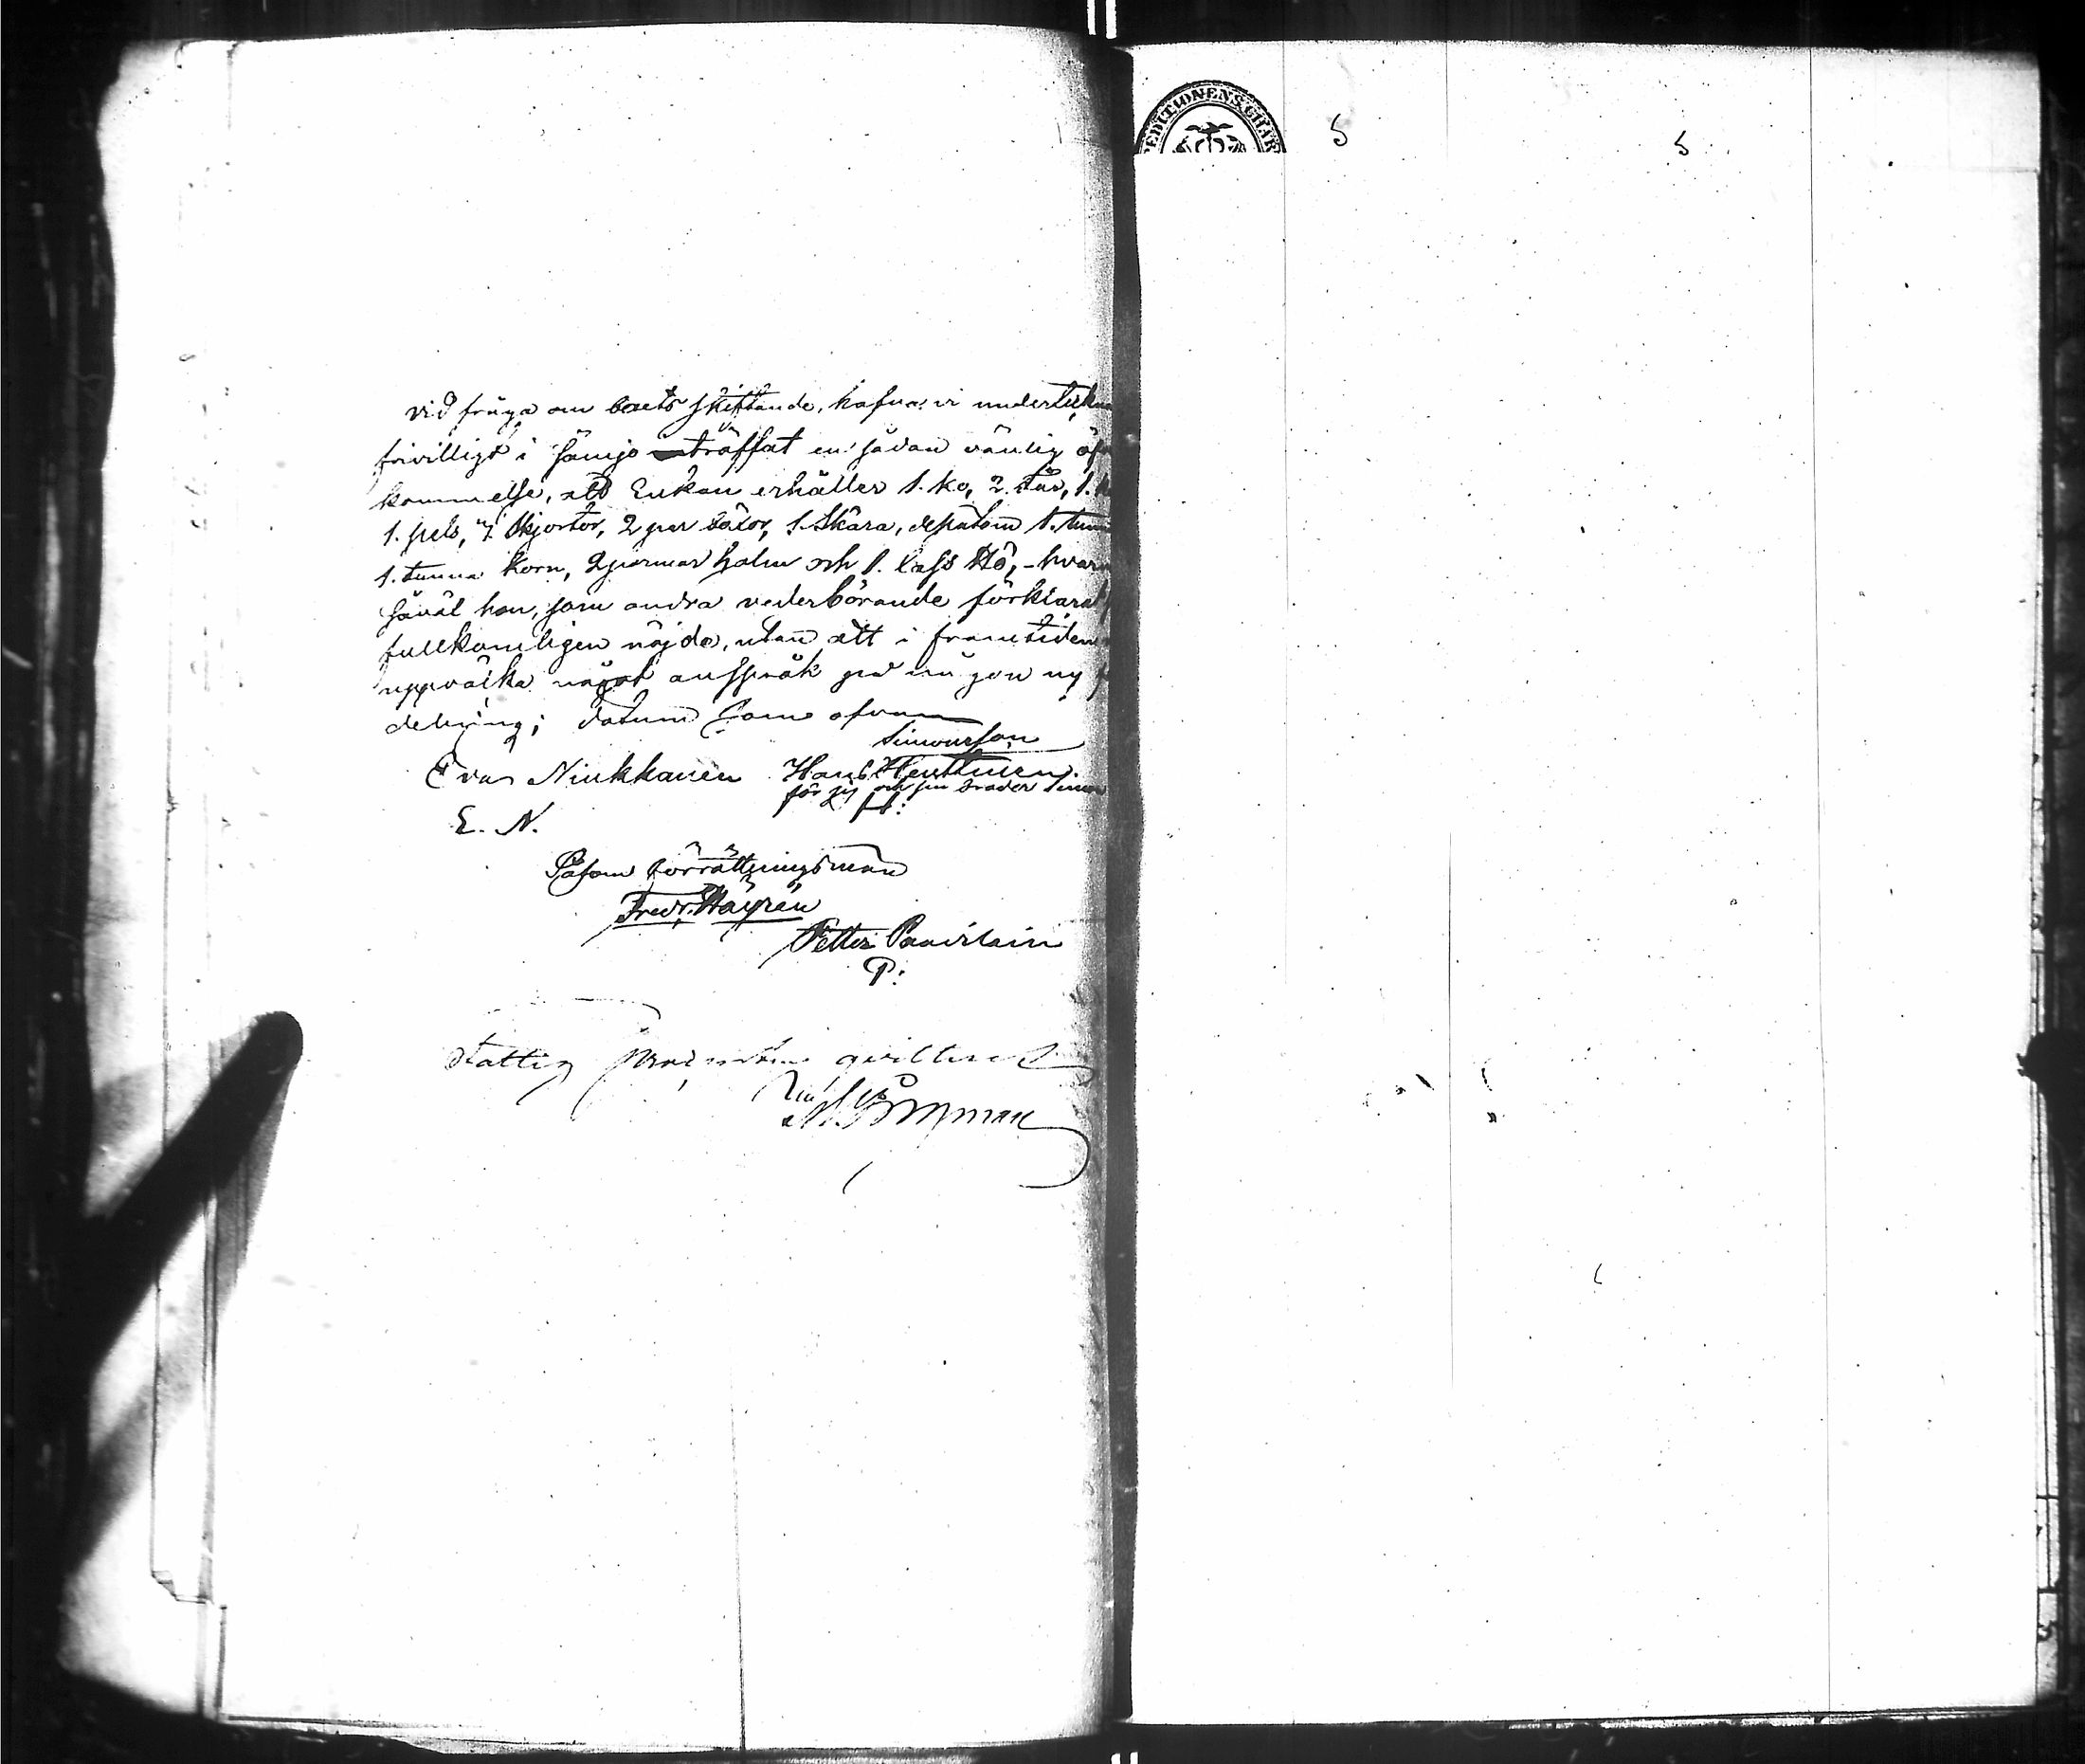 vid fråga om boets skiftande, hafva vi underteckn
frivilligt i sämjo träffat en sådan vänlig öf
kommelse, att Enkan erhåller 1. ko, 2. får, 1.
1. pels, 7. skjortor, 2 par 1. Skära, dessutom 1. tunn
1. tunna korn, 2 parmar halm och 1. lass Hö, - hvar
såväl hon, som andra vederbörande förklarat
fullkomligen nöjde, utan att i framtiden
uppväcka något anspråk på någon ny
delning; datum som ofvan
Simonsson
Eva Niukkanen Hans Henttinen
för sig och sin broder Simon
E. N.
Såsom Förrättningsmän
Fredr. Häyrén
Petter Paavilain
P:
Fattig qvitteras